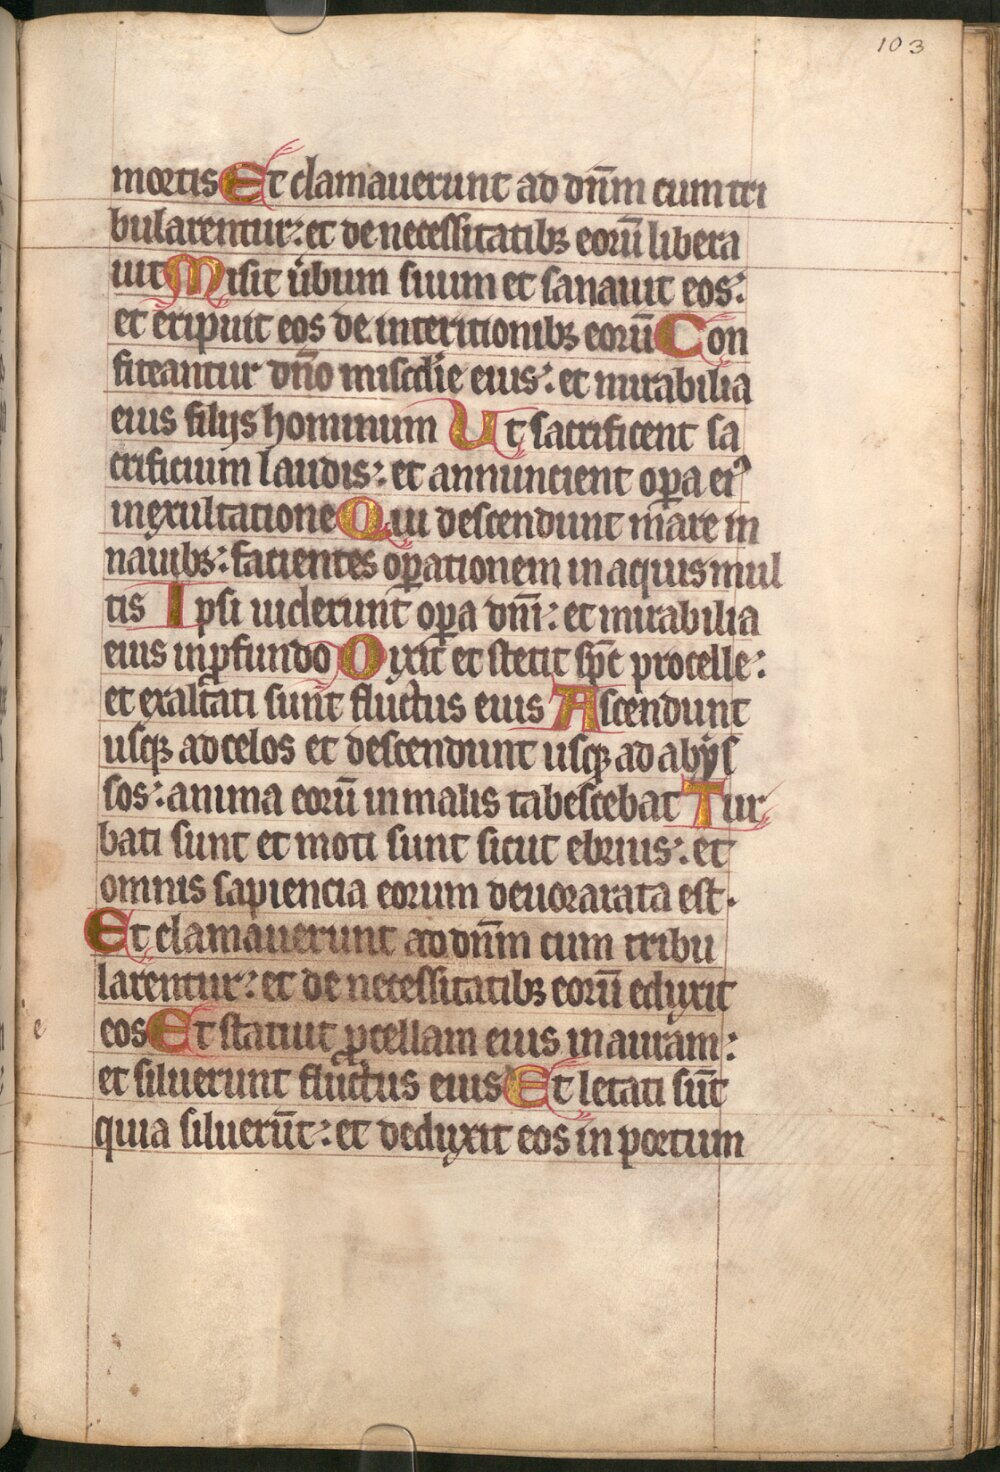 103
mortis Et clamauerunt ad dn̄m cum tri
bularentur: et de necessitatibꝫ eorū libera
uit Misit ūbum suum et sanauit eos:
et eripuit eos de interitionibꝫ eorū Con
fiteantur dn̄o miscdīe eius: et mirabilia
eius filijs hominum Ut sacrificent sa
crificium laudis: et annuncient oꝑa eiꝰ
in exultatione Qui descendunt mare in
nauibꝫ: facientes oꝑationem in aquis mul
tis Ipsi uiderunt oꝑa dn̄i: et mirabilia
eius in ꝓfundo Dixit et stetit sp̄c procelle:
et exaltati sunt fluctus eius Ascendunt
usqꝫ ad celos et descendunt usqꝫ ad abys
sos: anima eorū in malis tabescebat Tur
bati sunt et moti sunt sicut ebrius: et
omnis sapiencia eorum deuorarata est.
Et clamauerunt ad dn̄m cum tribu
larentur: et de necessitatibꝫ eorū eduxit
e
eos Et statuit ꝓcellam eius in auram:
et siluerunt fluctus eius Et letati sūt
quia siluerūt: et deduxit eos in portum